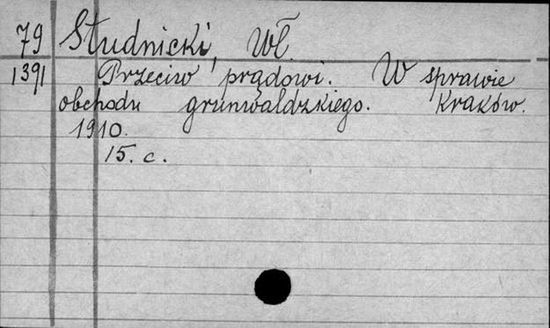 79 Studnicki, Wł
1391 Przeciw prądowi. W sprawie
obchodu grunwaldzkiego. Kraków.
1910.
15. c.